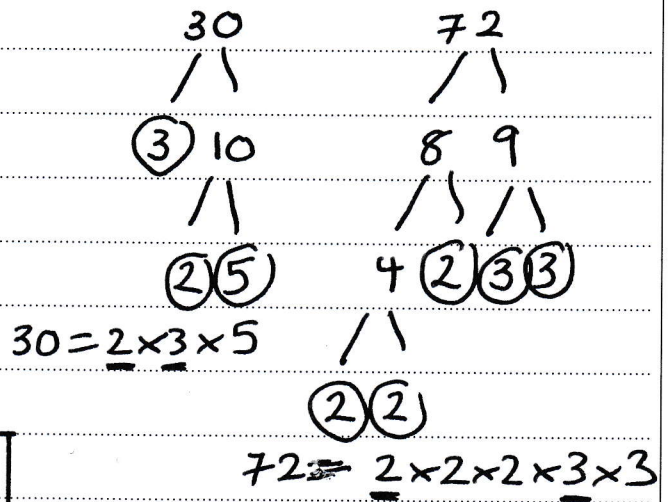 30 72
3 10 8 9
2 5 4 2 3 3
30 = 2 × 3 × 5
2 2
72 = 2 × 2 × 2 × 3 × 3